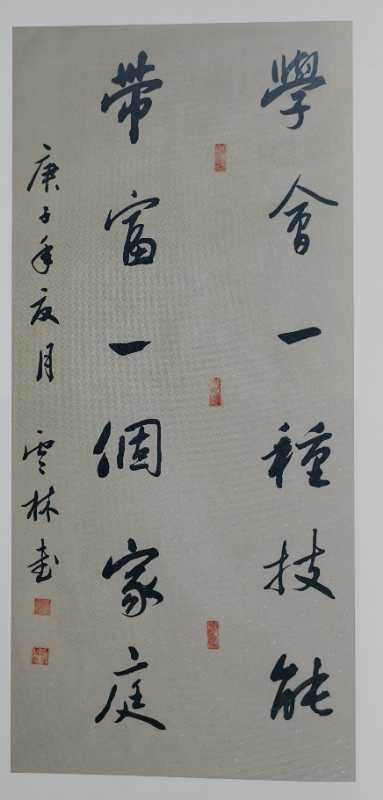 學會一種技能
帶富一個家庭
庚子年夏月 雲林書